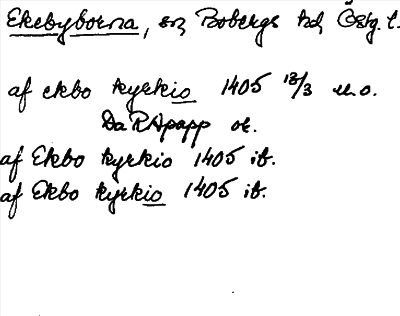 Ekebyborna, sn, Bobergs hd, Östg. l.
af ekbo kyrkio 1405 13/3 u.o.
Da RApapp or.
af Ekbo kyrkio 1405 ib.
af Ekbo kyrkio 1405 ib.